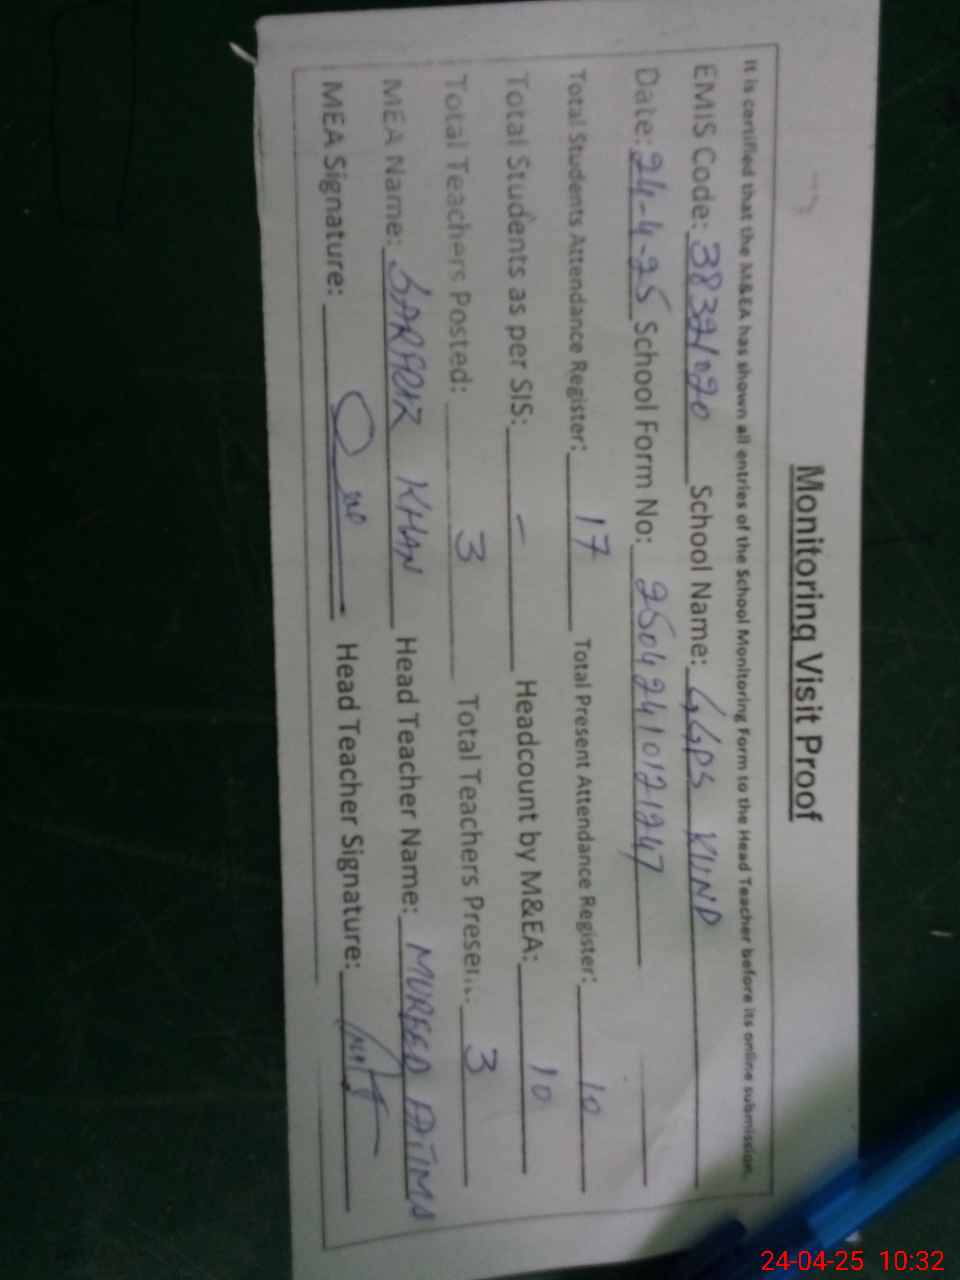 Monitoring Visit Proof
It is certified that the M&EA has shown all entries of the School Monitoring Form to the Head Teacher before its online submission.
EMIS Code: 38321020 School Name: GGPS KUND
Date: 24-4-25 School Form No: 25042410121247
Total Students Attendance Register: 17 Total Present Attendance Register: 10
Total Students as per SIS: - Headcount by M&EA: 10
Total Teachers Posted: 3 Total Teachers Present: 3
MEA Name: SARFRAZ KHAN Head Teacher Name: MUREED FATIMA
MEA Signature: Head Teacher Signature:
24-04-25 10:32